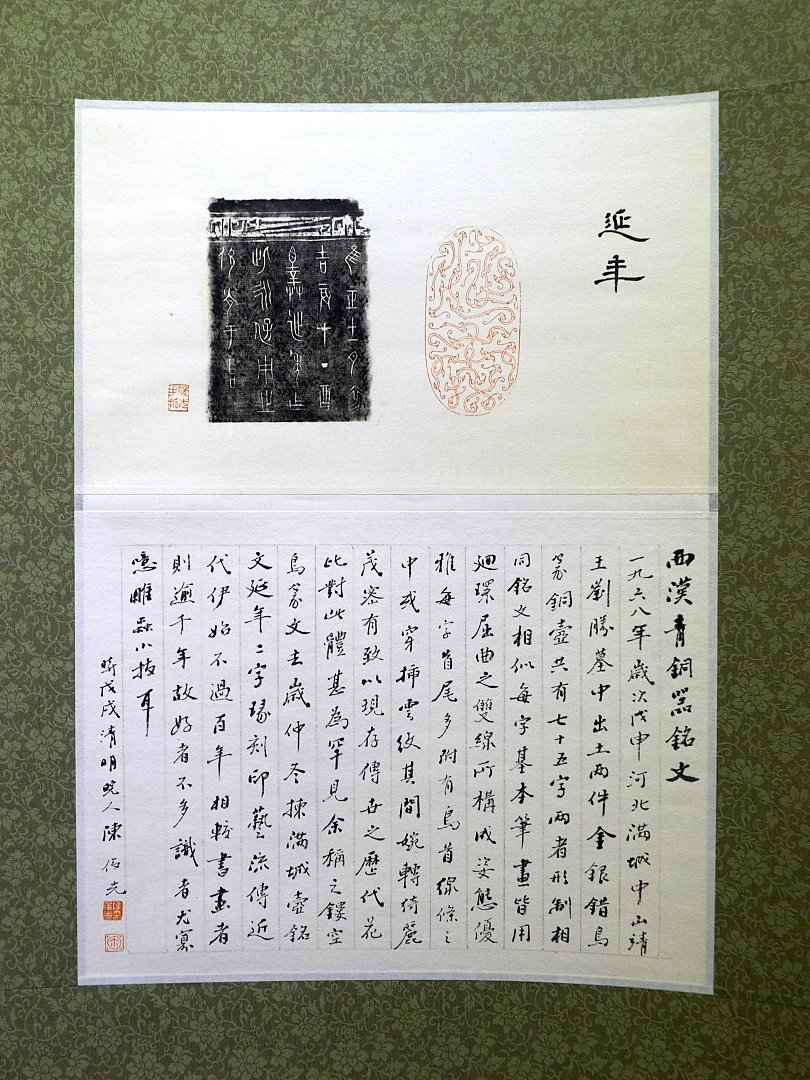 延年
西漢青銅器銘文
一九六八年歲次戊申河北滿城中山靖
王劉勝墓中出土兩件金銀錯鳥
篆銅壺共有七十五字兩者形制相
同銘文相似每字基本筆畫皆用
廻環屈曲之雙線所構成姿態優
雅每字首尾多附有鳥首線條之
中或穿插雲紋其間婉轉綺麗
茂密有致以現存傳世之歷代花
比對此體甚為罕見余稱之鏤空
鳥篆文去歲仲冬揀滿城壺銘
文延年二字琢刻印藝流傳近
代伊始不過百年相較書畫者
則逾千年故好者不多識者尤寡
噫雕蟲小技耳
時戊戌清明晚人陳